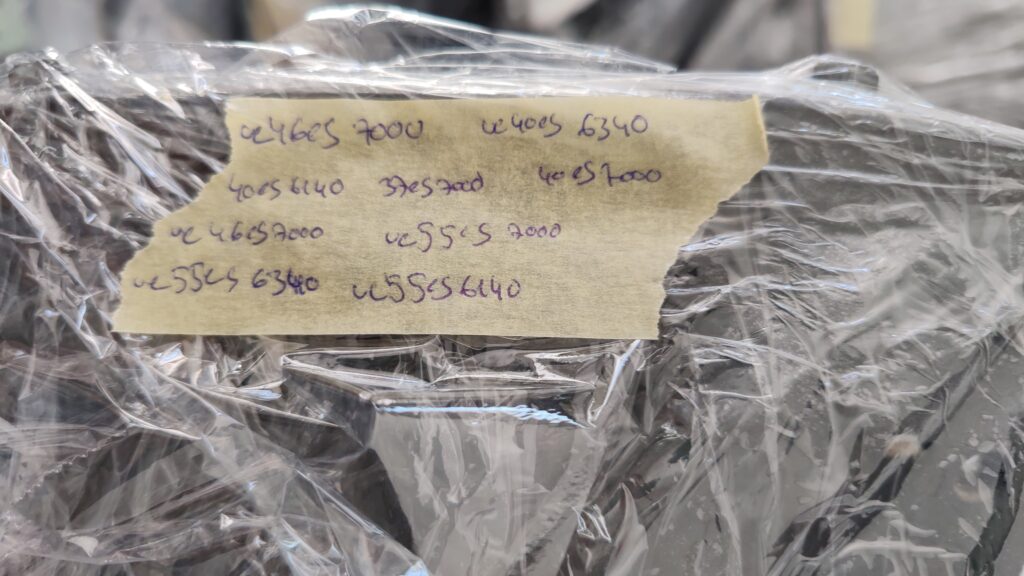 ue46es 7000 ue40es 6340
40es6140 37es7000 40es7000
ue 46es7000 ue55es 7000
ue55es 6340 ue55es6140